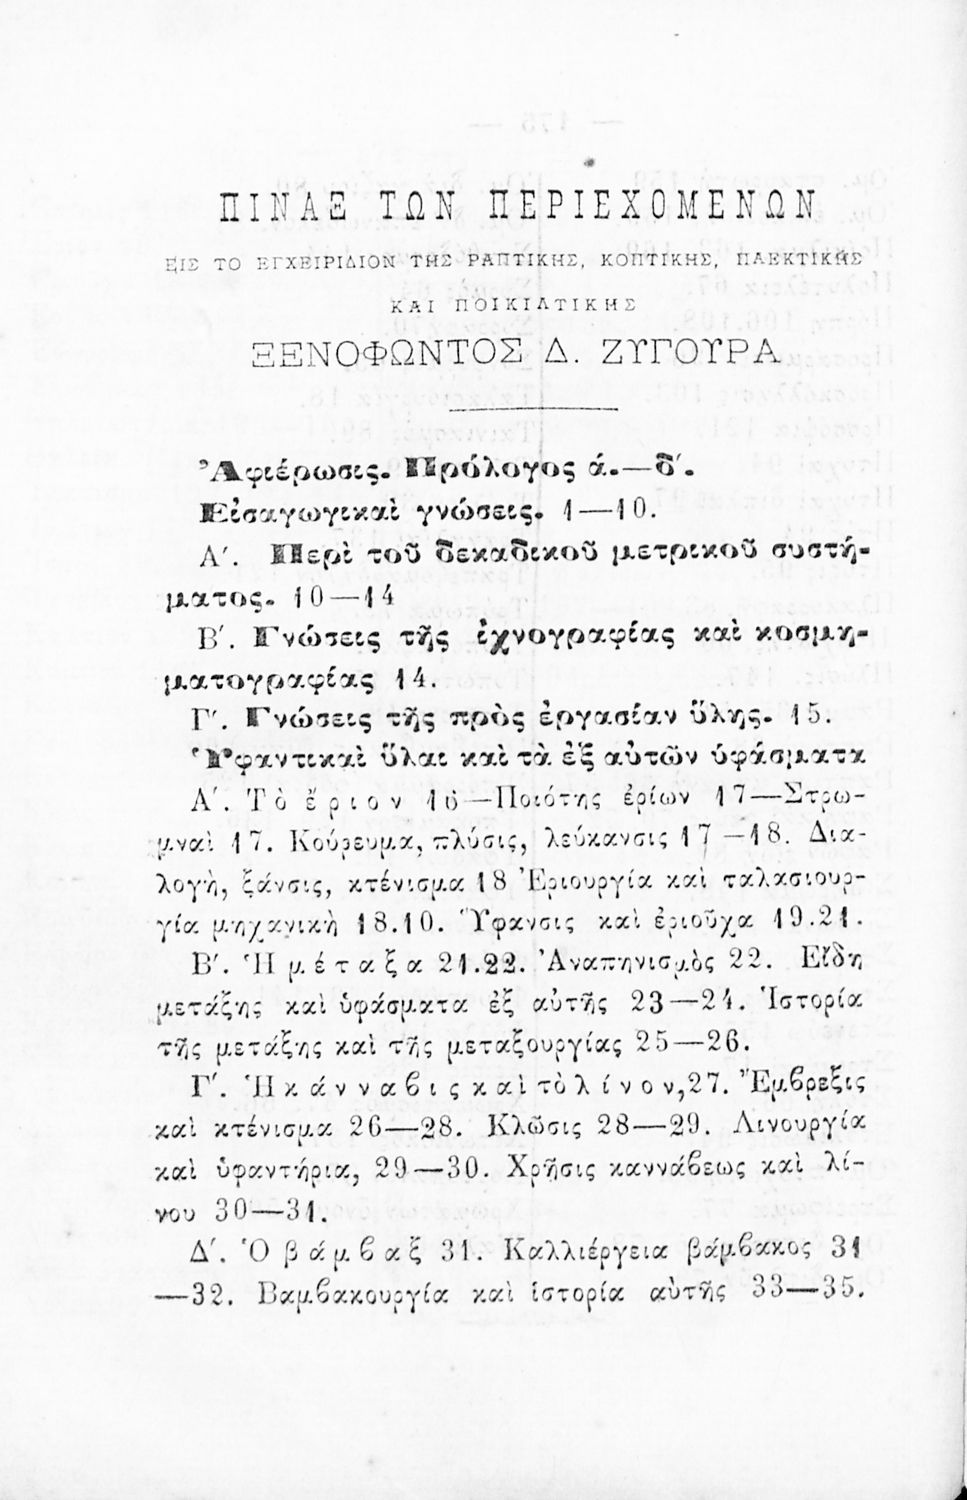 ΠΙΝΑΞ ΤΩΝ ΠΕΡΙΕΧΟΜΕΝΩΝ
ΕΙΣ ΤΟ ΕΓΧΕΙΡΙΔΙΟΝ ΤΗΣ ΡΑΠΤΙΚΗΣ, ΚΟΠΤΙΚΗΣ, ΠΛΕΚΤΙΚΗΣ
ΚΑΙ ΠΟΙΚΙΛΤΙΚΗΣ
ΞΕΝΟΦΩΝΤΟΣ Δ. ΖΥΓΟΥΡΑ
Ἀφιέρωσις. Πρόλογος ά.—δ΄.
Εἰσαγωγικαὶ γνώσεις. 1—10.
Α΄. Περὶ τοῦ δεκαδικοῦ μετρικοῦ συστή-
ματος. 10—14
Β΄. Γνώσεις τῆς ἰχνογραφίας καὶ κοσμη-
ματογραφίας 14.
Γ΄. Γνώσεις τῆς πρὸς ἐργασίαν ὕλης. 15.
Ὑφαντικαὶ ὗλαι καὶ τὰ ἐξ αὐτῶν ὑφάσματα
Α΄. Τὸ ἔριον 16—Ποιότης ἐρίων 17—Στρω-
μναὶ 17. Κούρευμα, πλύσις, λεύκανσις 17—18. Δια-
λογὴ, ξάνσις, κτένισμα 18 Ἐριουργία καὶ ταλασιουρ-
γία μηχανικὴ 18.10. Ὕφανσις καὶ ἐριοῦχα 19.21.
Β΄. Ἡ μέταξα 21.22. Ἀναπηνισμὸς 22. Εἴδη
μετάξης καὶ ὑφάσματα ἐξ αὐτῆς 23—24. Ἱστορία
τῆς μετάξης καὶ τῆς μεταξουργίας 25—26.
Γ΄. Ἡ κάνναβις καὶ τὸ λίνον, 27. Ἔμβρεξις
καὶ κτένισμα 26—28. Κλῶσις 28—29. Λινουργία
καὶ ὑφαντήρια, 29—30. Χρῆσις καννάβεως καὶ λί-
νου 30—31.
Δ΄. Ὁ βάμβαξ 31. Καλλιέργεια βάμβακος 31
—32. Βαμβακουργία καὶ ἱστορία αὐτῆς 33—35.